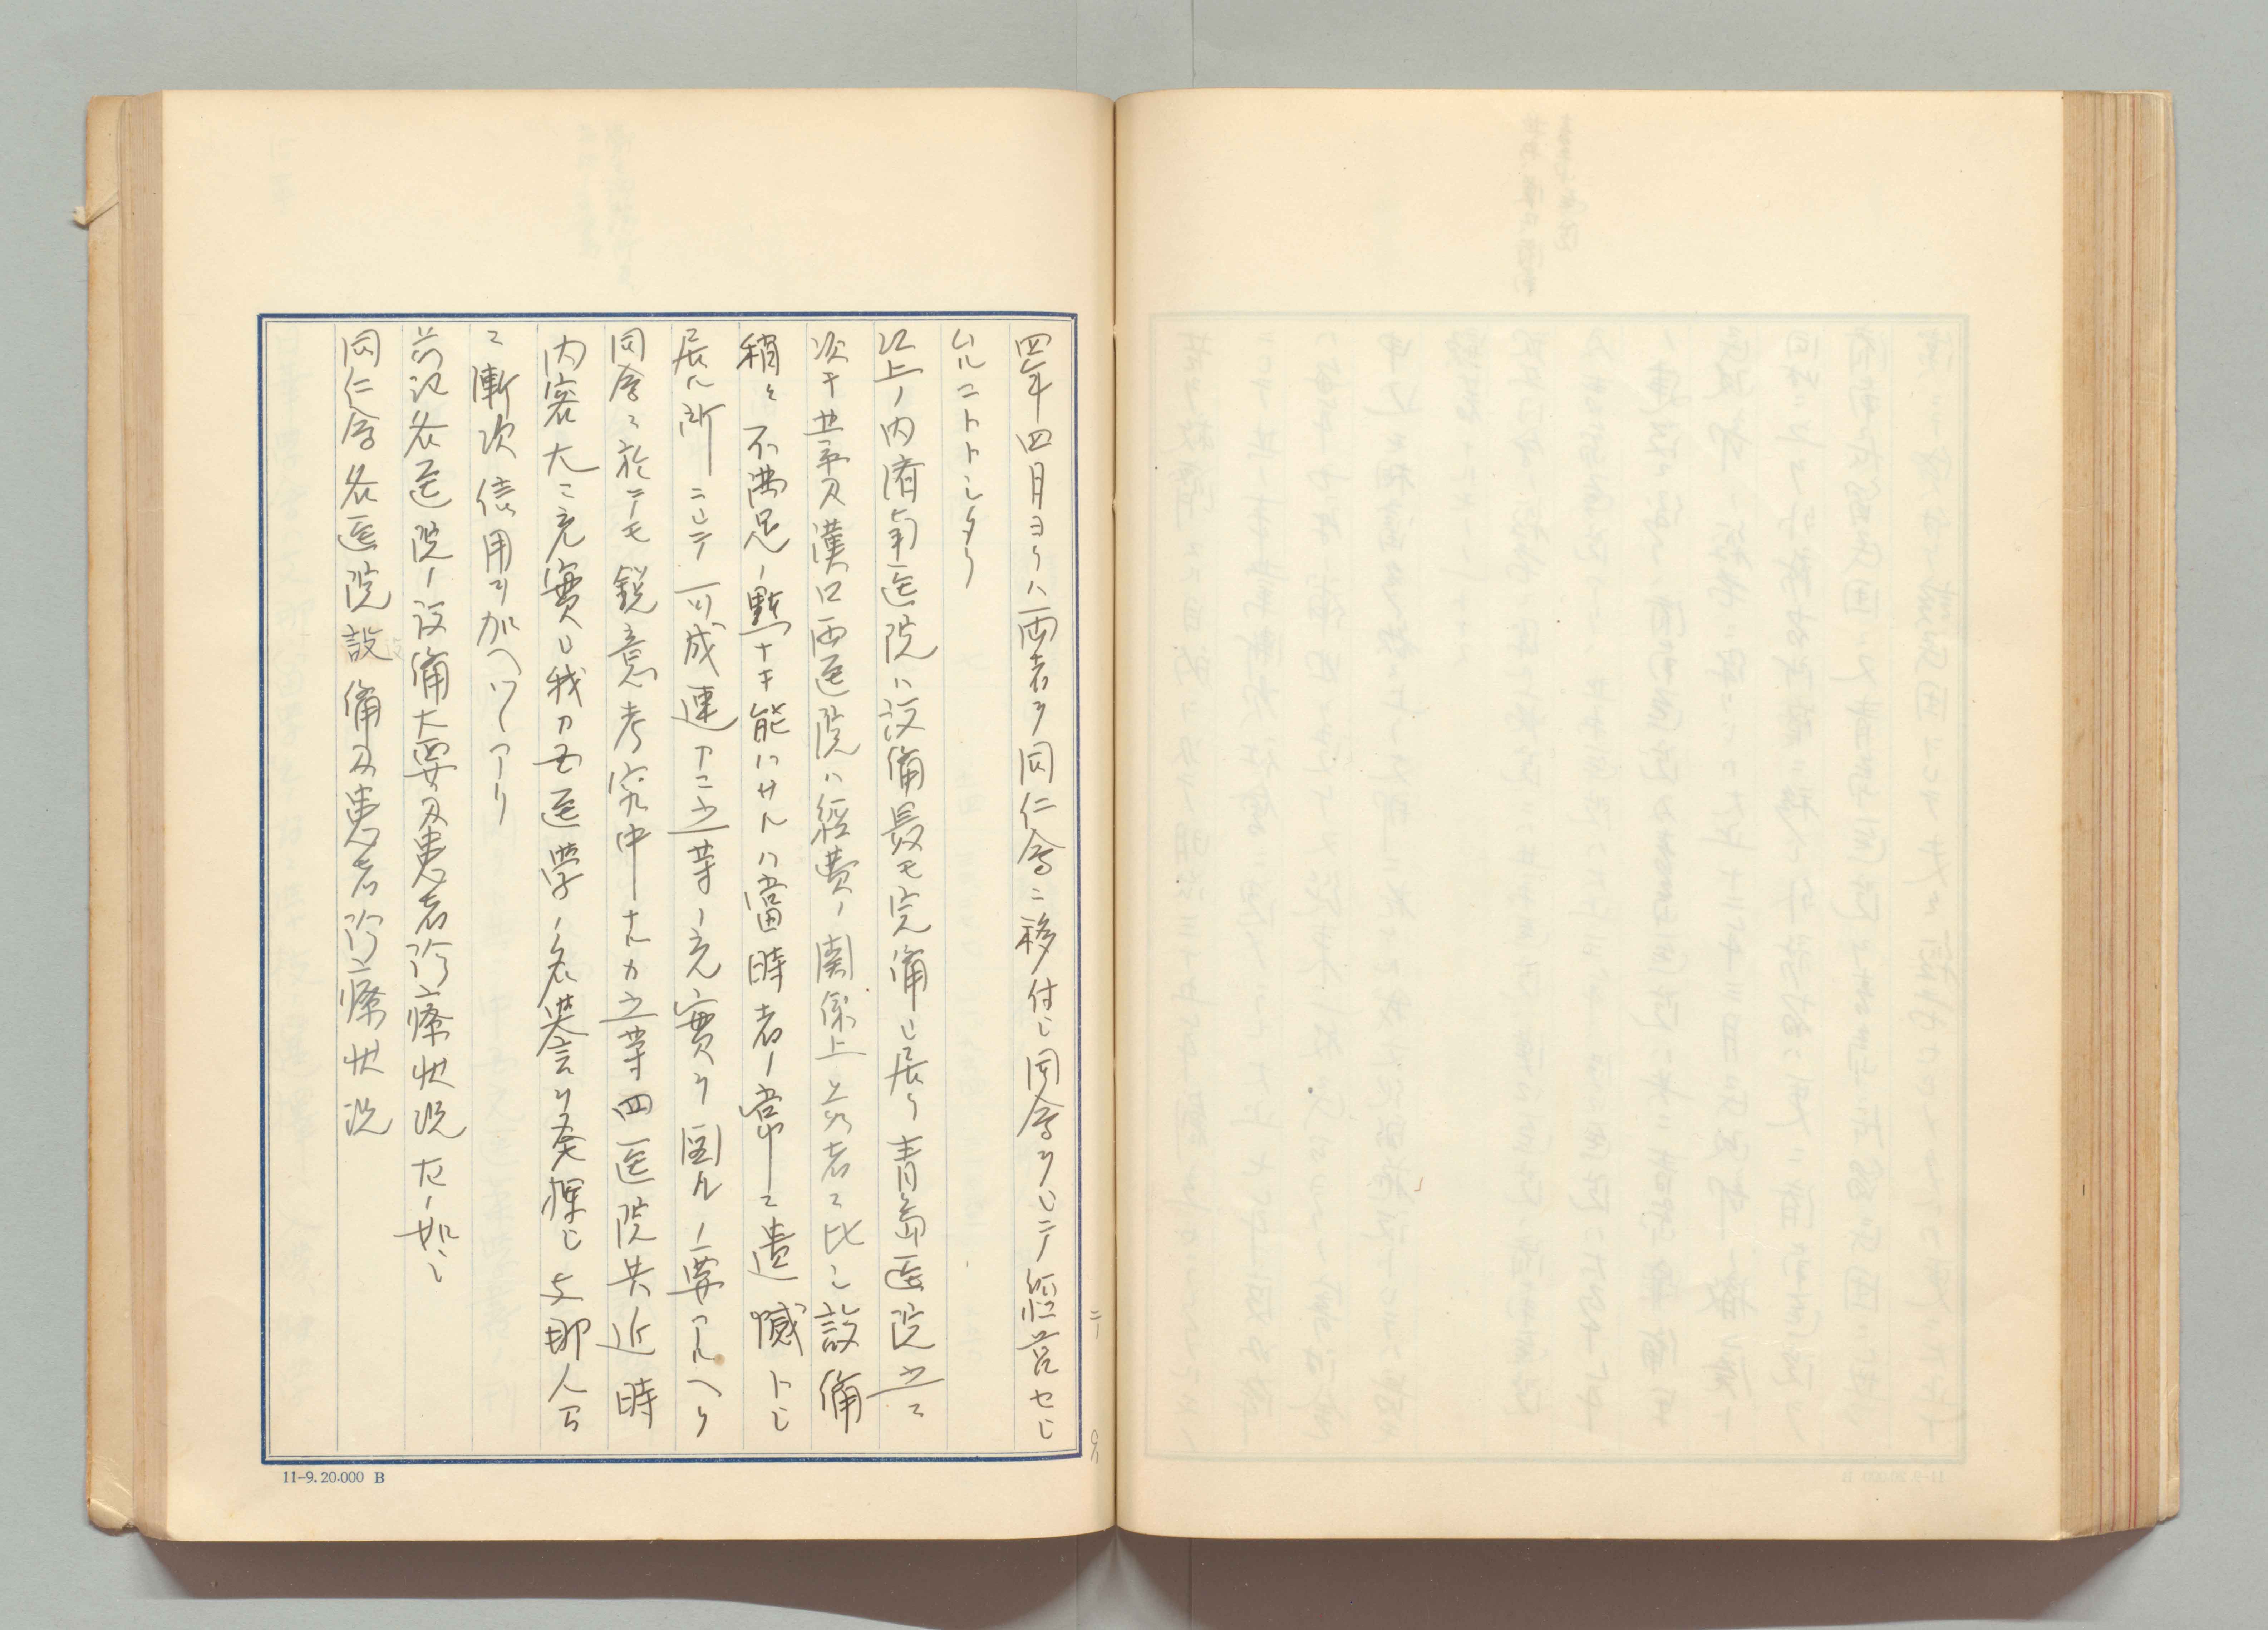 四年四月ヨリハ両者ヲ同仁会ニ移付シ同会ヲシテ経営セシ
ムルコトトシタリ
以上ノ内済南医院ハ設備最モ完備シ居リ青島医院之ニ
次キ北京及漢口両医院ハ経費ノ関係上前者ニ比シ設備
稍々不満足ノ點ナキ能ハサルハ當時者ノ常ニ遺憾トシ
居ル所ニシテ可成速カニ之等ノ充實ヲ図ルノ要アルヘク
同会ニ於テモ鋭意考究中ナルカ之等四医院共近時
内容大ニ充實シ我カ医学ノ名誉ヲ発揮シ支那人間
ニ漸次信用ヲ加ヘツツアリ
前記各医院ノ設備大要及患者診療状況左ノ如シ
同仁会各医院設備及患者診療状況
11-9. 20.000 B